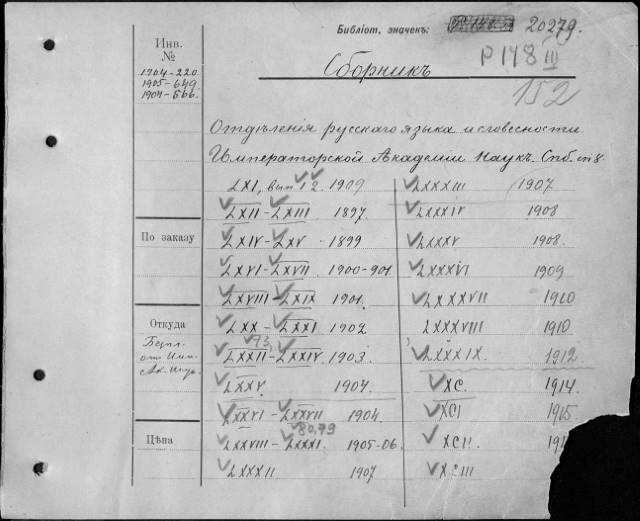 Библіот. значек: 20279.
Р 148 III
152
Инв.
№
1904-220
1905-649
1904-566.
Сборникъ
Отдѣленія русскаго языка и словесности
Императорской Академіи Наукъ. Спб. 8.
LXI, вып 1 2. 1909
LXII - LXIII 1897.
LXIV - LXV 1899
LXVI - LXVII 1900-901
LXVIII - LXIX 1901.
LXX - LXXI 1902
73
LXXII - LXXIV 1903.
LXXV 1904.
LXXVI - LXXVII 1904.
80.79
LXXVIII - LXXXI. 1905-06.
LXXXII 1907
LXXXIII 1907
LXXXIV 1908
LXXXV 1908.
LXXXVI 1909
LXXXVII 1910
LXXXVIII 1910
LXXXIX. 1912
XC. 1914.
XCI 1915.
XCII
XCIII
По заказу
Откуда
от Имп.
Ак. Наук.
Цѣна